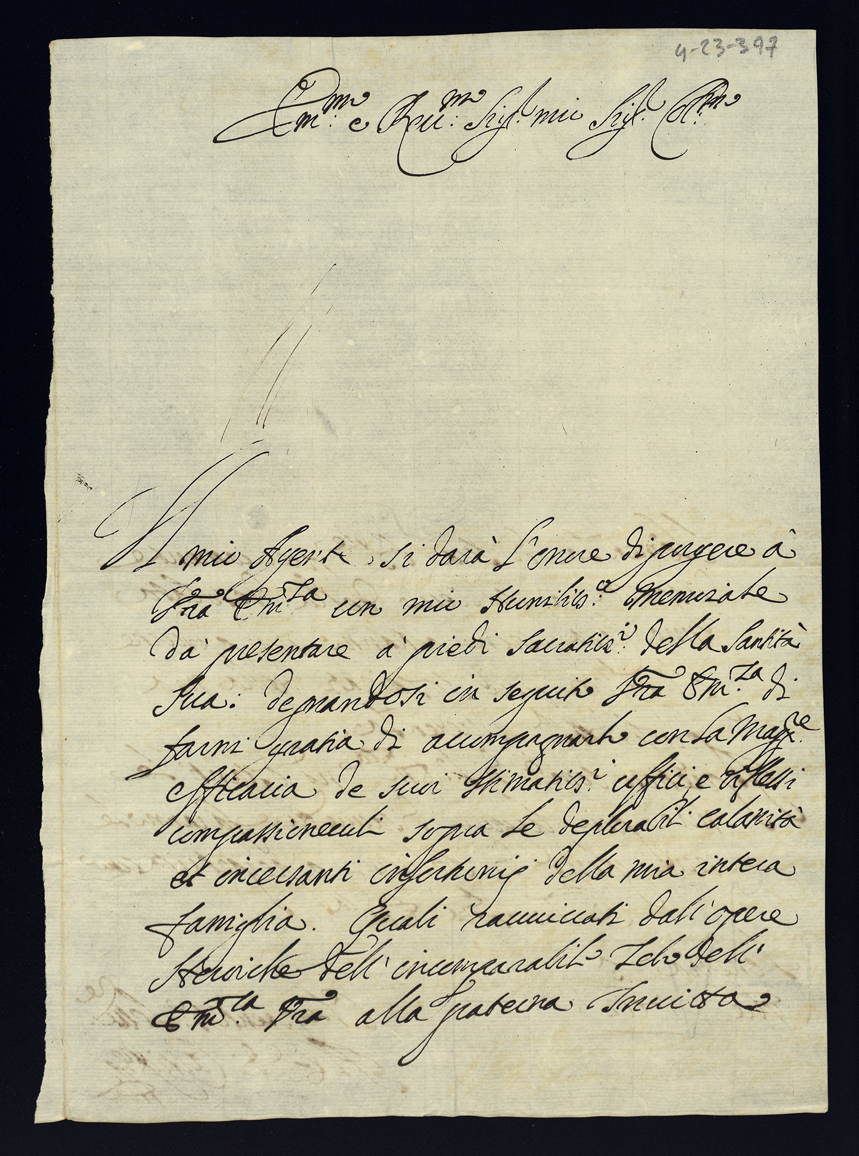 4-23-397
Em.mo e Reu.mo Sig.r mio Sig.r Col.mo
Il mio Agente, si darà l'onore di porgere à
Vra Em.za un mio Humiliss.o Memoriale
dà presentare à piedi Sacratiss.i della Santità
Sua: degnandosi in seguito Vra Em.za di
farmi gratia di accompagnarlo con la magg.re
efficacia de suoi stimatiss.i uffici, e riflessi
compassioneuoli sopra le deplorabili calamità
et incessanti infortunij della mia intera
famiglia. Quali rauuiuati dall'opere
Heroiche dell'incomparabile Zelo dell'
Em.za Vra alla paterna Inuitta